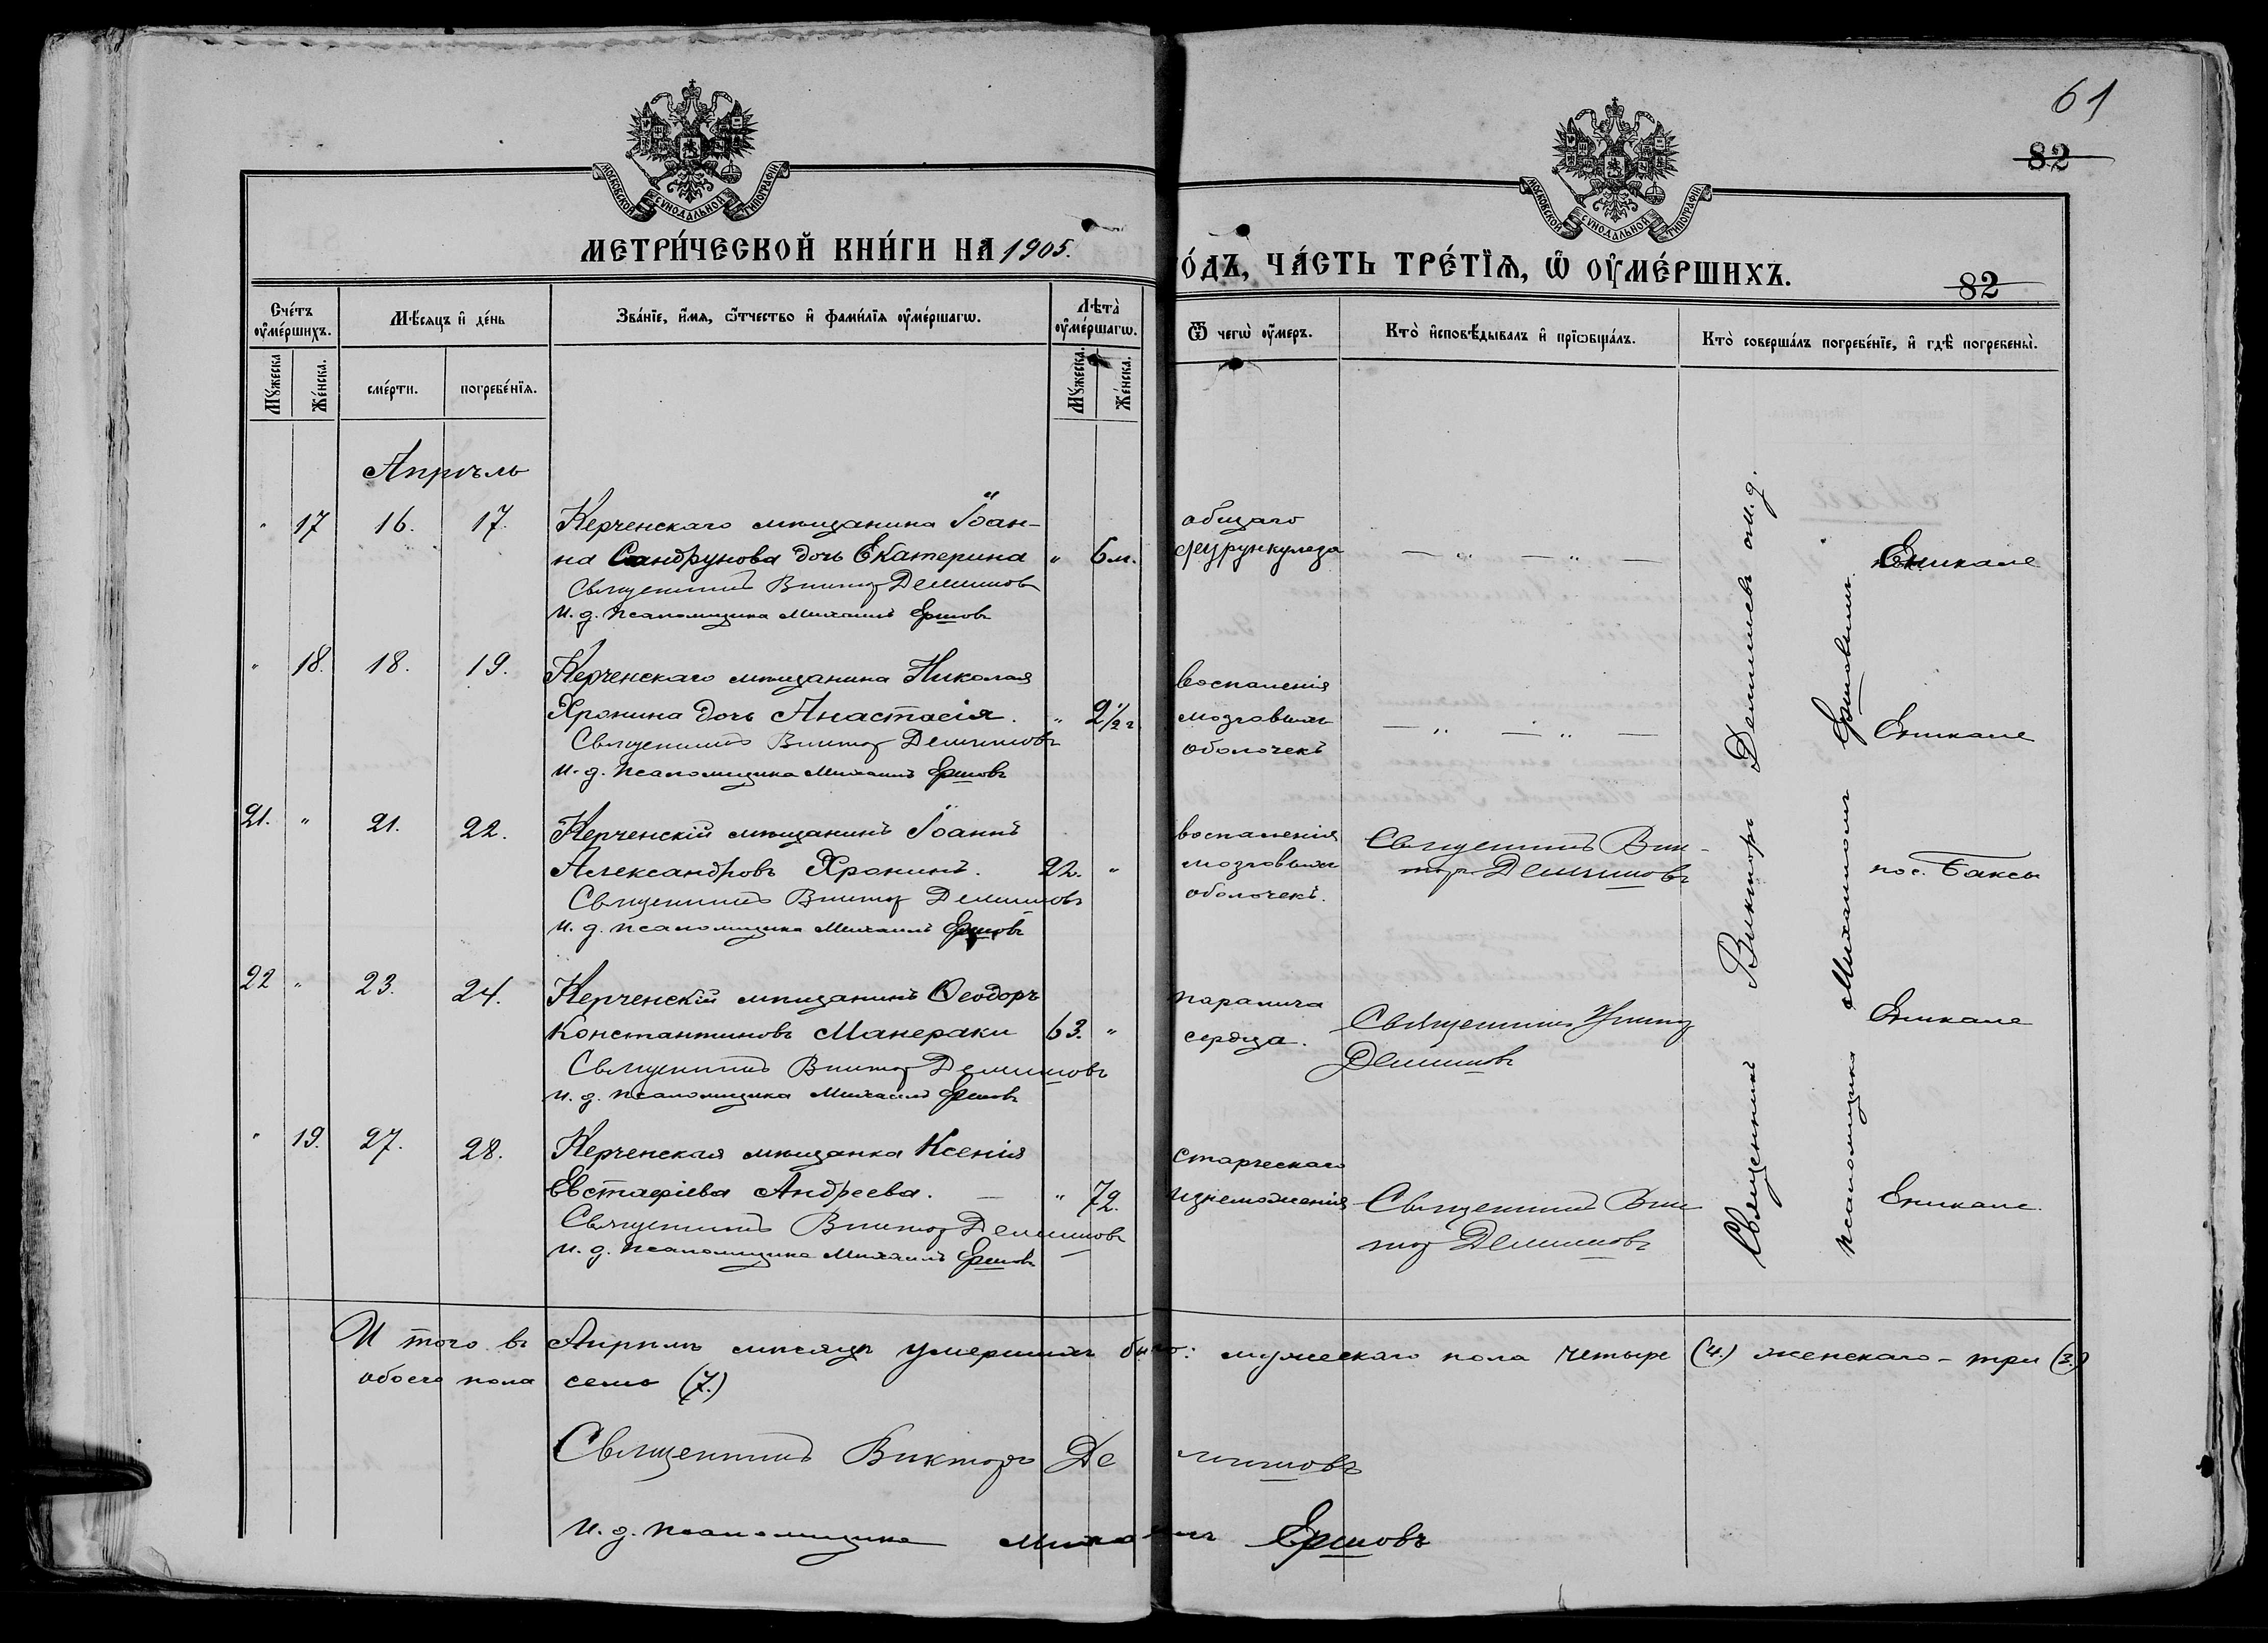 61
82
МОСКОВСКОЙ СѴНОДАЛЬНОЙ ТИПОГРАФІИ
МОСКОВСКОЙ СѴНОДАЛЬНОЙ ТИПОГРАФІИ
МЕТРИ́ЧЕСКОЙ КНИ́ГИ НА 1905.
О́ДЪ, ЧА́СТЬ ТРЕ́ТІѦ, Ѡ҆ ОУ҆МЕ́РШИХЪ.
82
Сче́тъ оу҆ме́ршихъ.
Мѣ́сяцъ и҆ де́нь
Зва́нїе, и҆́мя, ѻ҆́тчество и҆ фами́лїя оу҆ме́ршагѡ.
Лѣ̀та оу҆ме́ршагѡ.
Ѿ чегѡ̀ оу҆́меръ.
Кто̀ и҆сповѣ́дывалъ и҆ прїѡбща́лъ.
Кто̀ соверша́лъ погребе́нїе, и҆ гдѣ̀ погребены̀.
Мꙋ́жеска
Же́нска.
сме́рти.
погребе́нїя.
Мꙋ́жеска.
Же́нска.
Апрѣль
" 17 16. 17. Керченскаго мѣщанина Іоан-
на Сандрунова дочь Екатерина " 6 м.
Священникъ Викторъ Демишовъ
И. д. псаломщика Михаилъ Ершовъ
общаго
фурункулеза
— " — " —
Еникале
" 18. 18. 19. Керченскаго мѣщанина Николая
Хронина дочь Анастасія. " 2½ г.
Священникъ Викторъ Демишовъ
И. д. псаломщика Михаилъ Ершовъ
воспаленія
мозговыхъ
оболочекъ
— " — " —
Еникале
21. " 21. 22. Керченскій мѣщанинъ Іоаннъ
Александровъ Хронинъ. 22. "
Священникъ Викторъ Демишовъ
И. д. псаломщика Михаилъ Ершовъ
воспаленія
мозговыхъ
оболочекъ.
Священникъ Вик-
торъ Демишовъ
пос. Баксы
22 " 23. 24. Керченскій мѣщанинъ Ѳеодоръ
Константиновъ Манераки 63. "
Священникъ Викторъ Демишовъ
И. д. псаломщика Михаилъ Ершовъ
паралича
сердца.
Священникъ
Демишовъ
Еникале
" 19. 27. 28. Керченская мѣщанка Ксенія
Евстафіева Андреева. — " 72.
Священникъ Викторъ Демишовъ
И. д. псаломщика Михаилъ Ершовъ —
старческаго
изнеможенія
Священникъ Вик
торъ Демишовъ
Еникале.
Священникъ Викторъ Демишевъ
псаломщика Михаиломъ Ершовымъ
И того въ Апрѣлѣ мѣсяцѣ умершихъ было: мужескаго пола четыре (4.) женскаго - три (3.)
обоего пола семь (7.)
Священникъ Викторъ Демишовъ
И. д. псаломщика Михаилъ Ершовъ